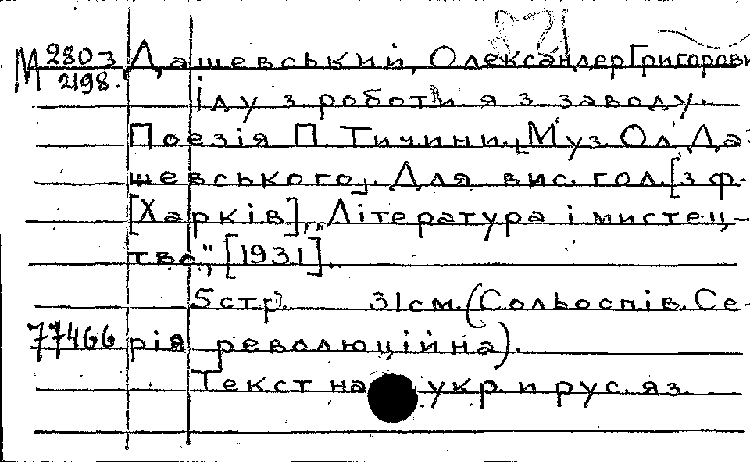 М 280-3 Дашевський, Олександер Григорови
2198.
Іду з роботи я з заводу.
Поезія П. Тичини. [Муз. Ол. Да-
шевського]. Для вис. гол. [з ф-
[Харків], „Література і мистец-
тво", [1931].
5 стр. 31 см. (Сольоспів. Се-
77466 рія революційна).
Текст на укр. и рус. яз.